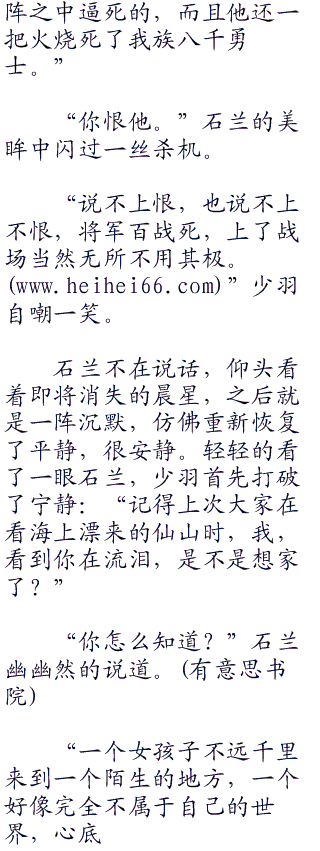 阵之中逼死的，而且他还一
把火烧死了我族八千勇
士。”
“你恨他。”石兰的美
眸中闪过一丝杀机。
“说不上恨，也说不上
不恨，将军百战死，上了战
场当然无所不用其极。
(www.heihei66.com)”少羽
自嘲一笑。
石兰不在说话，仰头看
着即将消失的晨星，之后就
是一阵沉默，仿佛重新恢复
了平静，很安静。轻轻的看
了一眼石兰，少羽首先打破
了宁静：“记得上次大家在
看海上漂来的仙山时，我，
看到你在流泪，是不是想家
了？”
“你怎么知道？”石兰
幽幽然的说道。(有意思书
院)
“一个女孩子不远千里
来到一个陌生的地方，一个
好像完全不属于自己的世
界，心底